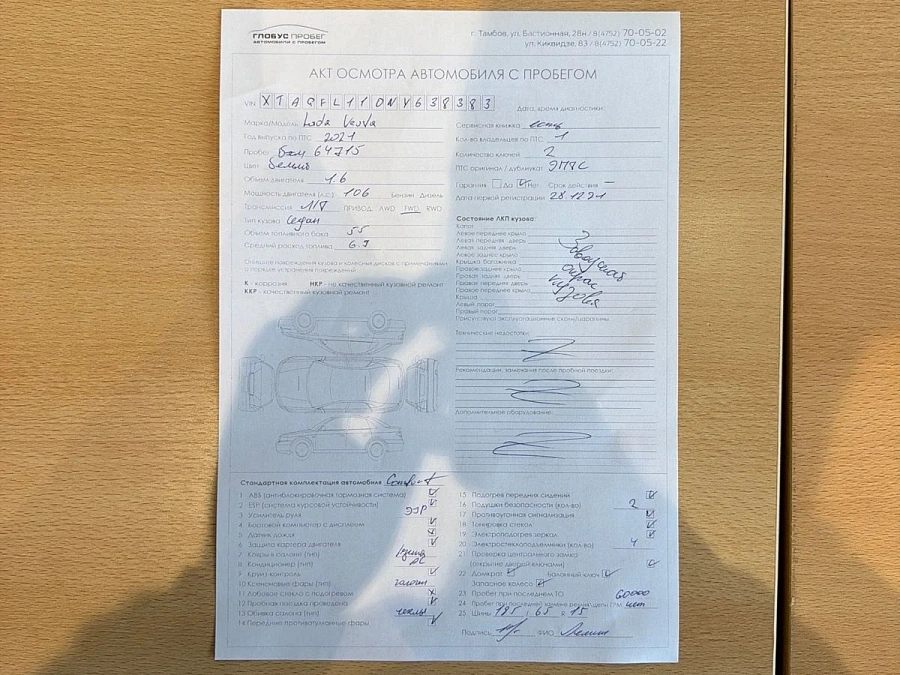 ГЛОБУС ПРОБЕГ
АВТОМОБИЛИ С ПРОБЕГОМ
г. Тамбов, ул. Бастионная, 28н / 8(4752) 70-05-02
ул. Киквидзе, 83 / 8(4752) 70-05-22
АКТ ОСМОТРА АВТОМОБИЛЯ С ПРОБЕГОМ
VIN XTAGFL110NY638383
Дата, время диагностики:
Марка/Модель Lada Vesta
Год выпуска по ПТС 2021
Пробег 64715
Цвет белый
Объем двигателя 1.6
Мощность двигателя (л.с.) 106 Бензин Дизель
Трансмиссия ПРИВОД: AWD FWD RWD
Тип кузова Седан
Объем топливного бака 55
Средний расход топлива 6.9
Описание повреждений кузова и колесных дисков с примечаниями
о порядке устранения повреждений
К - коррозия НКР - не качественный кузовной ремонт
ККР - качественный кузовной ремонт
Сервисная книжка есть
Кол-во владельцев по ПТС 1
Количество ключей 2
ПТС оригинал / дубликат ЭПТС
Гарантия Да Нет Срок действия –
Дата первой регистрации 28.12.21
Состояние ЛКП кузова:
Капот
Левое переднее крыло
Левая передняя дверь
Левая задняя дверь
Левое заднее крыло
Крышка багажника
Правое заднее крыло
Правая задняя дверь
Правая передняя дверь
Правое переднее крыло
Крыша
Левый порог
Правый порог
Заводской
окрас
кузова
Присутствуют эксплуатационные сколы/царапины
Технические недостатки:
Рекомендации, замечания после пробной поездки:
Дополнительное оборудование:
Стандартная комплектация автомобиля Comfort
1 АБЗ (антиблокировочная тормозная система)
2 ESP (система курсовой устойчивости)
3 Усилитель руля ЭУР
4 Бортовой компьютер с дисплеем
5 Датчик дождя
6 Защита картера двигателя
7 Ковры в салоне (тип)
8 Кондиционер (тип) AC
9 Круиз контроль
10 Ксеноновые фары (тип) галоген
11 Лобовое стекло с подогревом
12 Пробная поездка проведена
13 Обивка салона (тип) чехлы
14 Передние противотуманные фары
15 Подогрев передних сидений
16 Подушки безопасности (кол-во) 2
17 Противоугонная сигнализация
18 Тонировка стекол
19 Электроподогрев зеркал
20 Электростеклоподъемники (кол-во) 4
21 Проверка центрального замка
(открытие дверей ключами)
22 Домкрат Балонный ключ
Запасное колесо
23 Пробег при последнем ТО 60000
24 Пробег при последней замене ремня/цепи ГРМ нет
25 Шины 185 / 65 x 15
Подпись ФИО